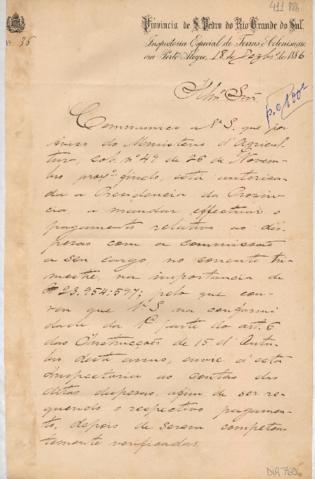 411
Provincia de S. Pedro do Rio Grande do Sul.
Inspectoria Especial de Terras e Colonisação
em Porto Alegre, 18 de Dezbro de 1886
Nº 36
Illmo Snr.
Communico a Vª Sª que por
aviso do Ministerio d'Agricul-
tura, sob nº 49 de 26 de Novem-
bro proxº findo, está autorisa-
da a Presidencia da Provin-
cia a mandar effectuar o
pagamento relativo as des-
pezas com a commissão
a seu cargo no corrente tri-
mestre, na importancia de
23:954:597; pelo que con-
vem que Vª Sª na conformi-
dade da 1ª parte do art. 6
das Instrucções de 15 d'Outu-
bro deste anno, envie á esta
Inspectoria as contas das
ditas despezas, afim de ser re-
querido o respectivo pagamen-
to, depois de serem competen-
temente verificadas.